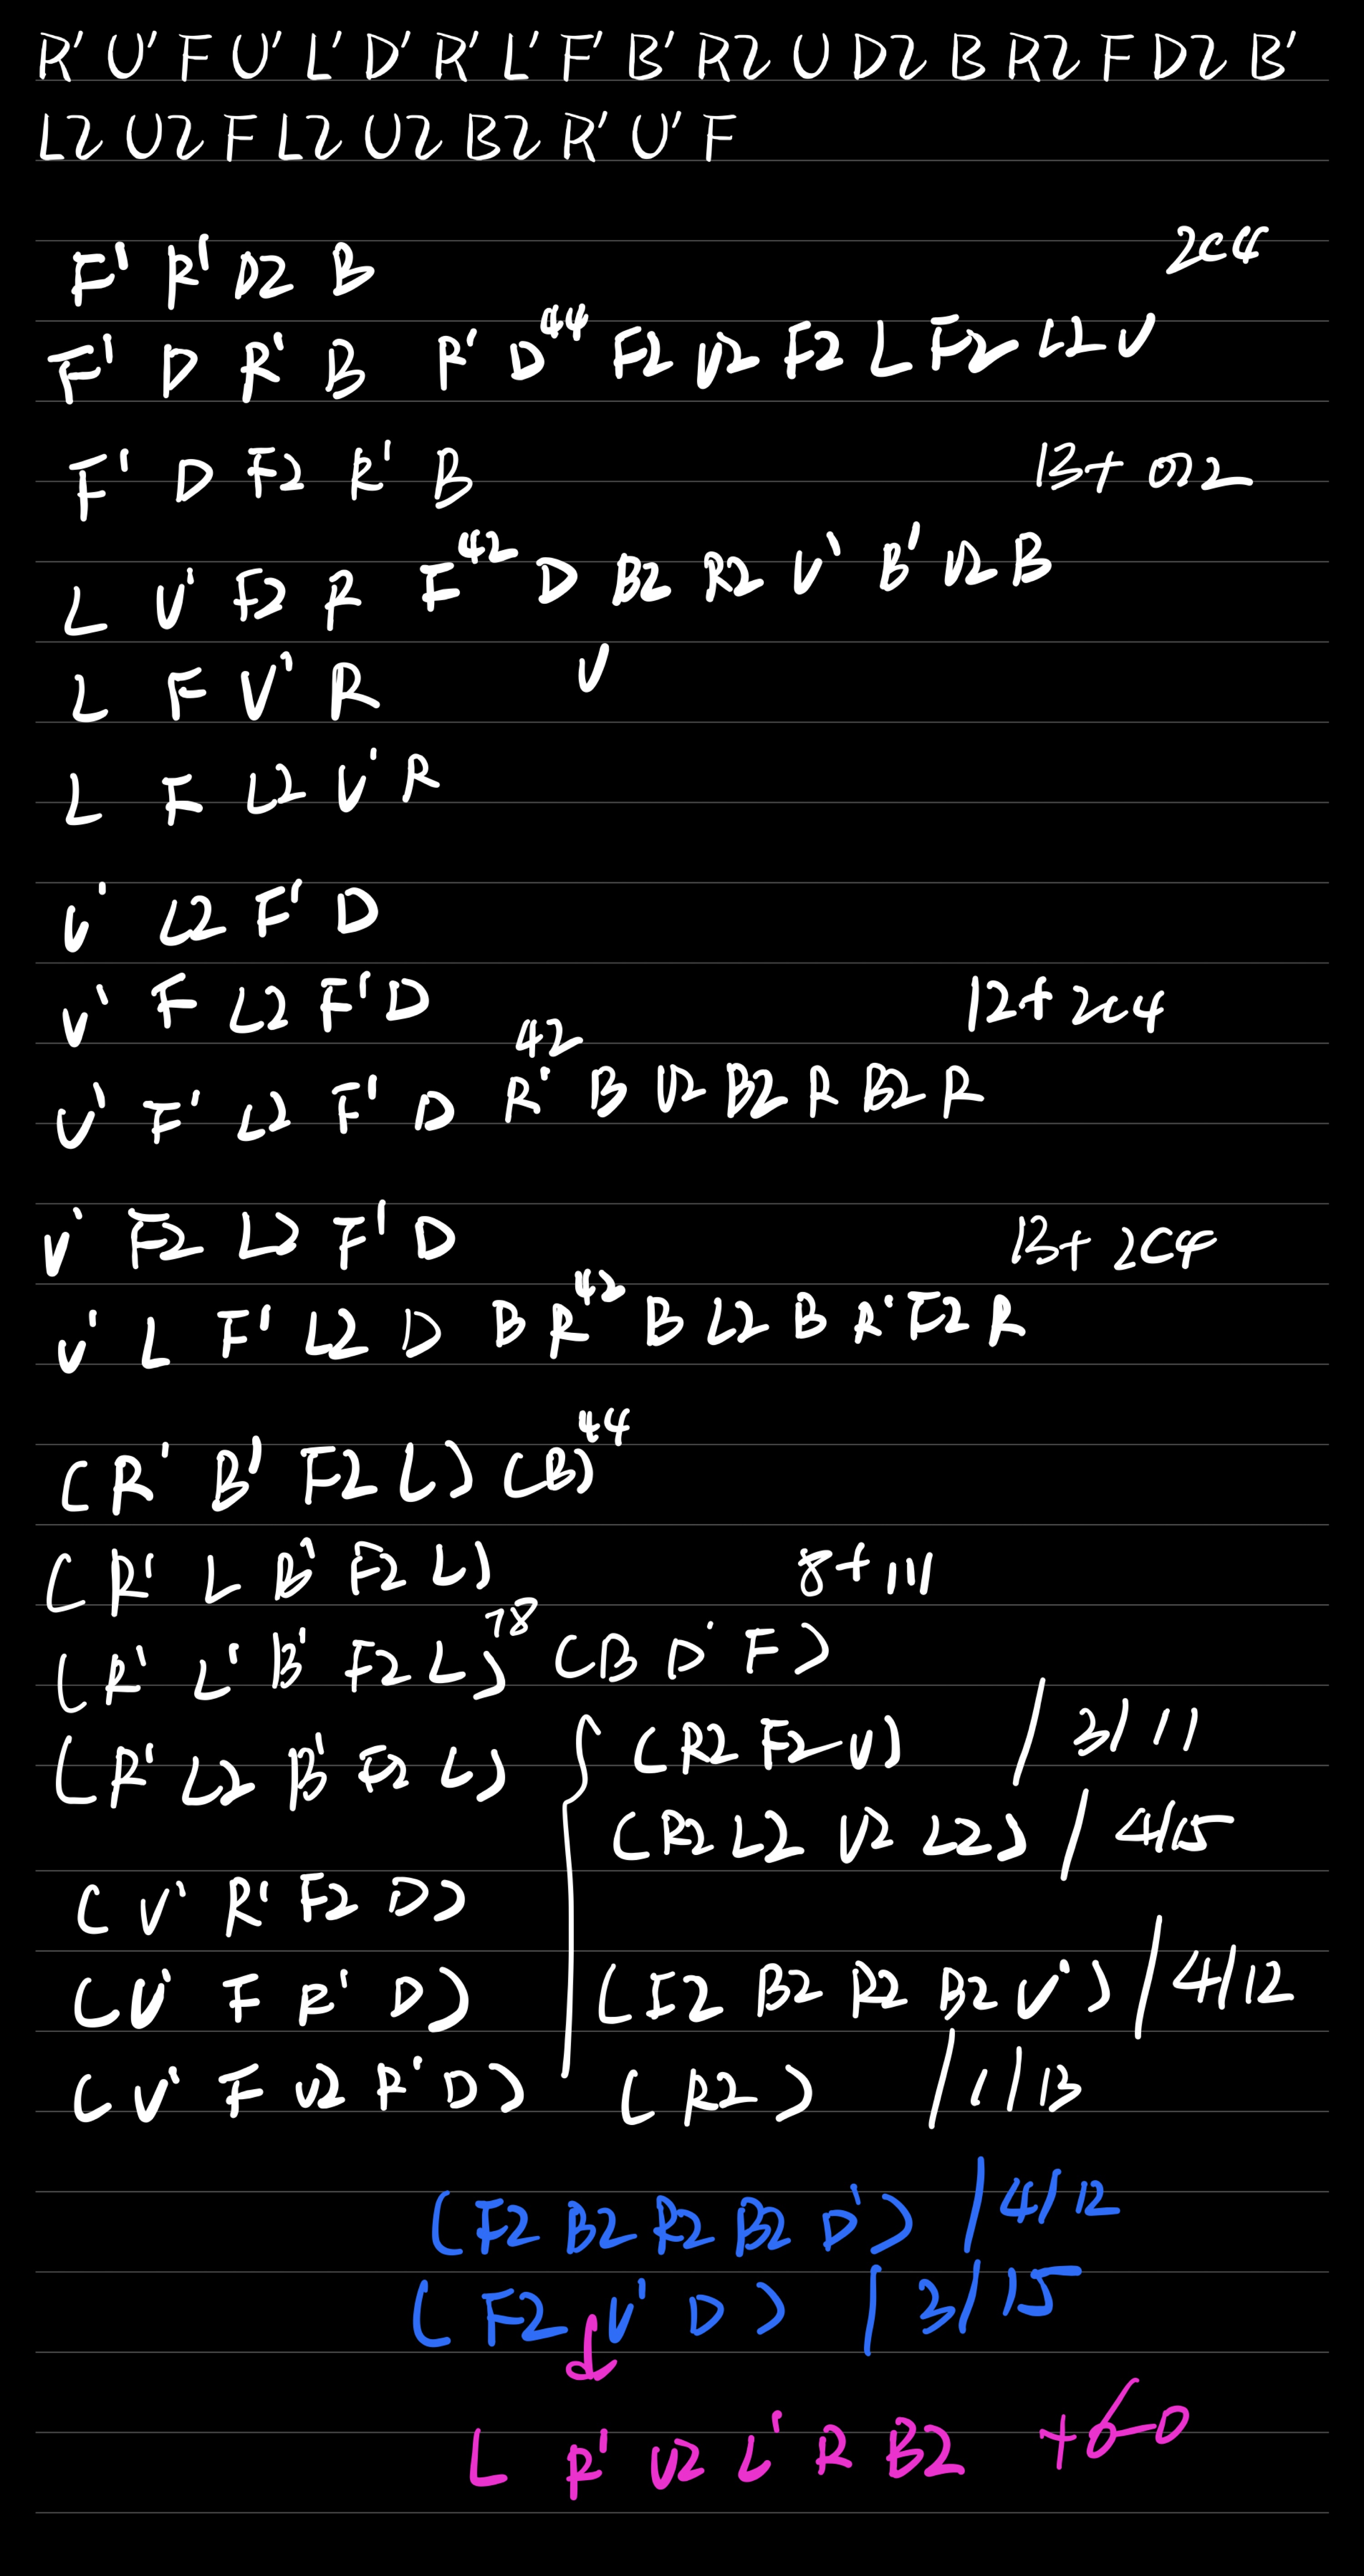 R' U' F U' L' D' R' L' F' B' R2 U D2 B R2 F D2 B'
L2 U2 F L2 U2 B2 R' U' F
F' R' D2 B 2c4
F' D R' B R' D 44 F2 U2 F2 L F2 L2 U
F' D F2 R' B 13+
L U' F2 R F 42 D B2 R2 U' B' U2 B
L F U' R U
L F L2 U' R
U' L2 F' D
U' F L2 F' D 12+ 2c4
U' F' L2 F' D R' 42 B U2 B2 R B2 R
U' F2 L2 F' D 13+ 2C4
U' L F' L2 D B R 42 B L2 B R' F2 R
(R' B' F2 L) (B) 44
(R' L B' F2 L) 8+111
(R' L' B' F2 L) 78 (B D' F)
(R' L2 B' F2 L) { (R2 F2 U) / 3/11
(R2 L2 U2 L2) / 4/15
(U' R' F2 D)
(U' F R' D) (F2 B2 R2 B2 U') / 4/12
(U' F U2 R' D) (R2) / 1/13
(F2 B2 R2 B2 D') / 4/12
(F2 U' D) / 3/15
L R' U2 L' R B2